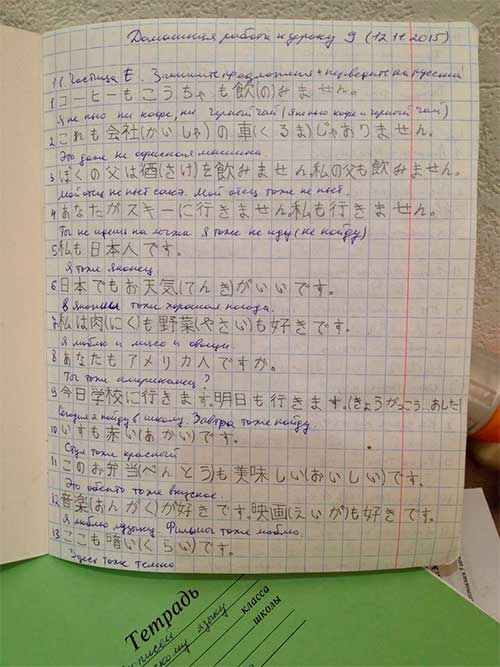 Домашняя работа к уроку 9 (12.11.2015)
11. Частица Е. Запишите предложения и переведите на русский
1 コーヒーもこうちゃも飲(の)みません。
Я не пью ни кофе, ни чёрный чай (я не пью кофе и чёрный чай)
2 これも会社(かいしゃ)の車(くるま)じゃありません。
Это даже не офисная машина.
3 ぼくの父は酒(さけ)を飲みません。私の父も飲みません。
Мой отец не пьёт саке. Мой отец тоже не пьёт.
4 あなたがスキーに行きません。私も行きません。
Ты не идёшь на лыжах. Я тоже не иду (не пойду)
5 私も日本人です。
Я тоже японец
6 日本でもお天気(てんき)がいいです。
В Японии тоже хорошая погода.
7 私は肉(にく)も野菜(やさい)も好きです。
Я люблю и мясо и овощи.
8 あなたもアメリカ人ですか。
Ты тоже американец?
9 今日学校に行きます。明日も行きます。(きょうがっこう. あした)
Сегодня я пойду в школу. Завтра тоже пойду.
10 いすも赤い(あかい)です。
Стул тоже красный
11 このお弁当(べんとう)も美味しい(おいしい)です。
Это обенто тоже вкусное.
12 音楽(おんがく)が好きです。映画(えいが)も好きです。
Я люблю музыку. Фильмы тоже люблю.
13 ここも暗い(くらい)です。
Здесь тоже темно
Тетрадь
языку
класса
школы